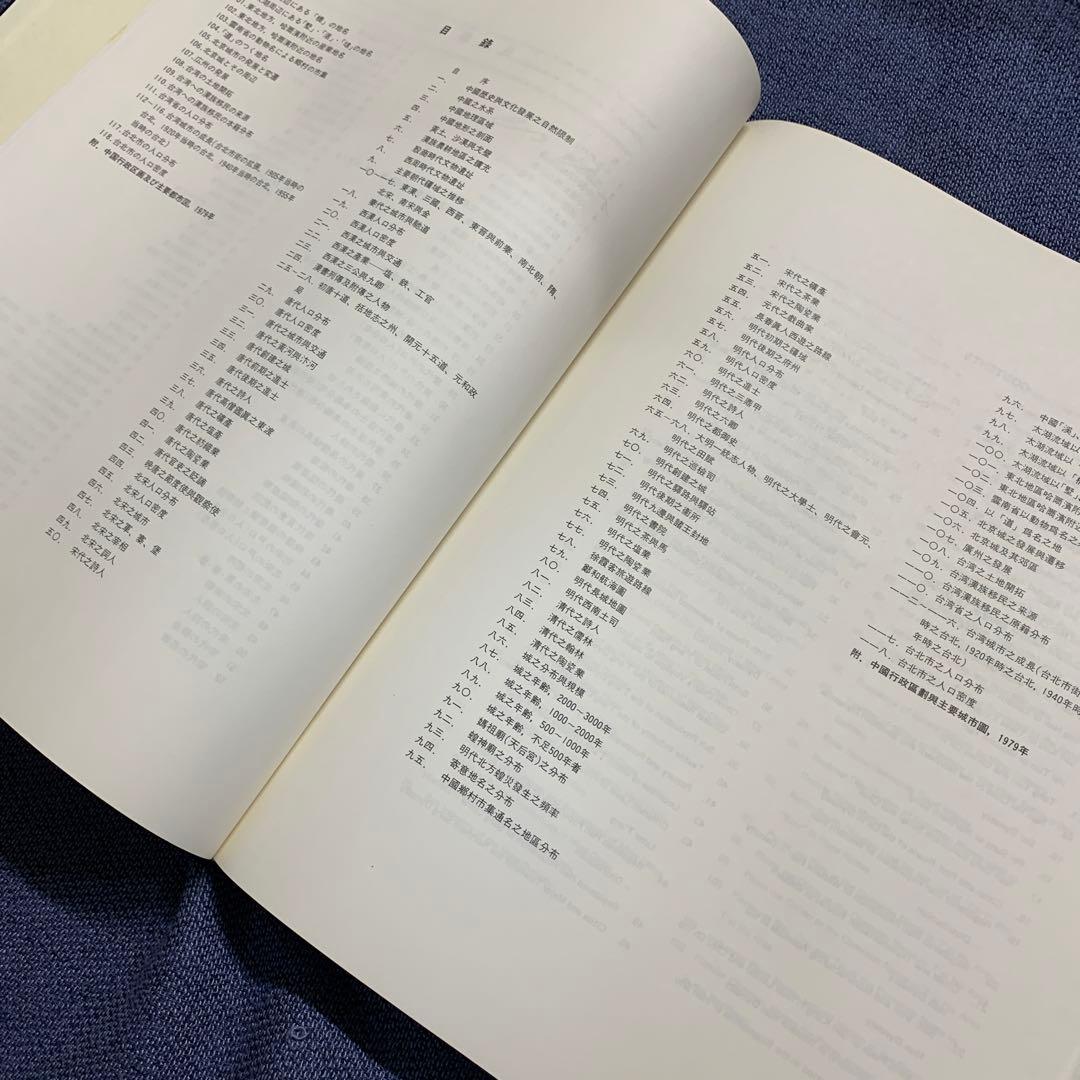 周辺にある「橋」の地名
103.雲南省の動物名による郷村の市集
104.「道」のつく地名
105.北京城市の発展と変遷
106.北京城とその周辺
107.広州の発展
108.台湾の土地開拓
109.台湾への漢族移民の来源
110.台湾への漢族移民の本籍分布
111.台湾省の人口分布
112—116.台湾城市の成長(台北市街の拡張、1905年当時の
台北、1920年当時の台北、1940年当時の台北、1955年
当時の台北)
117.台北市の人口分布
118.台北市の人口密度
附.中国行政区画及び主要都市図、1979年
目 錄
目 序
一. 中國歷史與文化發展之自然限制
二. 中國之水系
三. 中國地理區域
四. 中國地形之剖面
五. 黃土、沙漠與戈壁
六. 漢族農耕地區之擴充
七. 殷商時代文物遺址
八. 西周時代文物遺址
九. 主要朝代疆域之推移
一〇—一七. 東漢、三國、西晉、東晉與前秦、南北朝、隋、
北宋、南宋與金
一八. 秦代之城市與馳道
一九. 西漢人口分布
二〇. 西漢人口密度
二一. 西漢之城市與交通
二二. 西漢之產業—塩、鉄、工官
二三. 西漢之三公與九卿
二四. 漢書列傳及附傳之人物
二五-二八. 初唐十道、括地志之州、開元十五道、元和政
局
二九. 唐代人口分布
三〇. 唐代人口密度
三一. 唐代之城市與交通
三二. 唐代之黃河與汴河
三三. 唐代創建之城
三四. 唐代前期之進士
三五. 唐代後期之進士
三六. 唐代之詩人
三七. 唐代高僧鑑真之東渡
三八. 唐代之礦產
三九. 唐代之塩產
四〇. 唐代之紡織業
四一. 唐代之陶瓷業
四二. 唐代官吏之貶謫
四三. 晚唐之節度使與觀察使
四四. 北宋人口分布
四五. 北宋人口密度
四六. 北宋之城市
四七. 北宋之寨、堡
四八. 北宋之宰相
四九. 北宋之詞人
五〇. 宋代之詩人
五一. 宋代之礦產
五二. 宋代之茶業
五三. 宋代之陶瓷業
五四. 元代之戲曲家
五五. 長春真人西遊之路線
五六. 明代初期之疆域
五七. 明代後期之府州
五八. 明代人口分布
五九. 明代人口密度
六〇. 明代之進士
六一. 明代之三鼎甲
六二. 明代之詩人
六三. 明代之六卿
六四. 明代之都御史
六五-六八. 大明一統志人物、明代之大學士、明代之會元、
明代之田賦
六九. 明代之巡檢司
七〇. 明代創建之城
七一. 明代之驛路與驛站
七二. 明代後期之衛所
七三. 明代九邊與諸王封地
七四. 明代之書院
七五. 明代之茶與馬
七六. 明代之塩業
七七. 明代之陶瓷業
七八. 徐霞客旅遊路線
七九. 鄭和航海圖
八〇. 明代長城地圖
八一. 明代西南土司
八二. 清代之詩人
八三. 清代之儒林
八四. 清代之翰林
八五. 清代之陶瓷業
八六. 城之分布與規模
八七. 城之年齡, 2000~3000年
八八. 城之年齡, 1000~2000年
八九. 城之年齡, 500~1000年
九〇. 城之年齡, 不足500年者
九一. 媽祖廟(天后宮)之分布
九二. 蝗神廟之分布
九三. 明代北方蝗災發生之頻率
九四. 寄意地名之分布
九五. 中國鄉村市集通名之地區分布
九六. 中國「溪」
九七. 太湖流域以
九八. 太湖流域以「
九九. 太湖流域以「
一〇〇. 太湖流域以「
一〇一. 太湖流域以「墅」
一〇二. 東北地區哈爾濱附
一〇三. 雲南省以動物為名之
一〇四. 以「道」為名之地
一〇五. 北京城之發展與遷移
一〇六. 北京城及其郊區
一〇七. 廣州之發展
一〇八. 台湾之土地開拓
一〇九. 台湾漢族移民之來源
一一〇. 台湾漢族移民之原籍分布
一一一. 台湾省之人口分布
一一二-一一六. 台湾城市之成長(台北市街
時之台北, 1920年時之台北, 1940年時
年時之台北)
一一七. 台北市之人口分布
一一八. 台北市之人口密度
附. 中國行政區劃與主要城市圖, 1979年